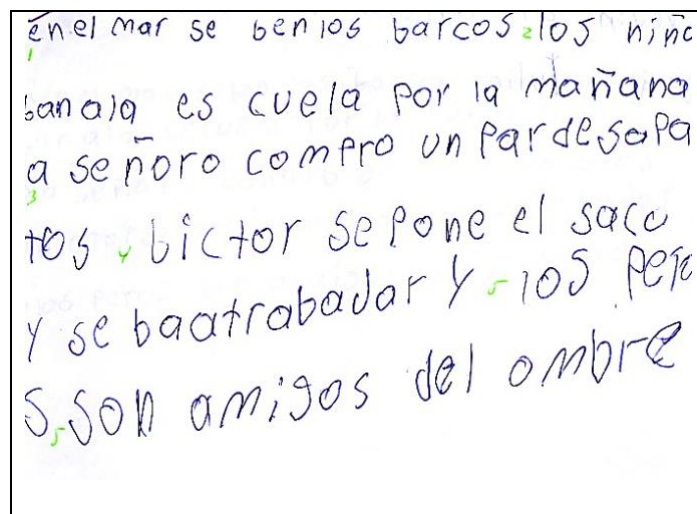 enel mar se benlos barcos 2 los niño
1
banala es cuela por la mañana
a señoro compro un par desapa
3
tos 4 bictor sepone el saco
y se baatrabadar y 5 los pero
s 5 son amigos del ombre